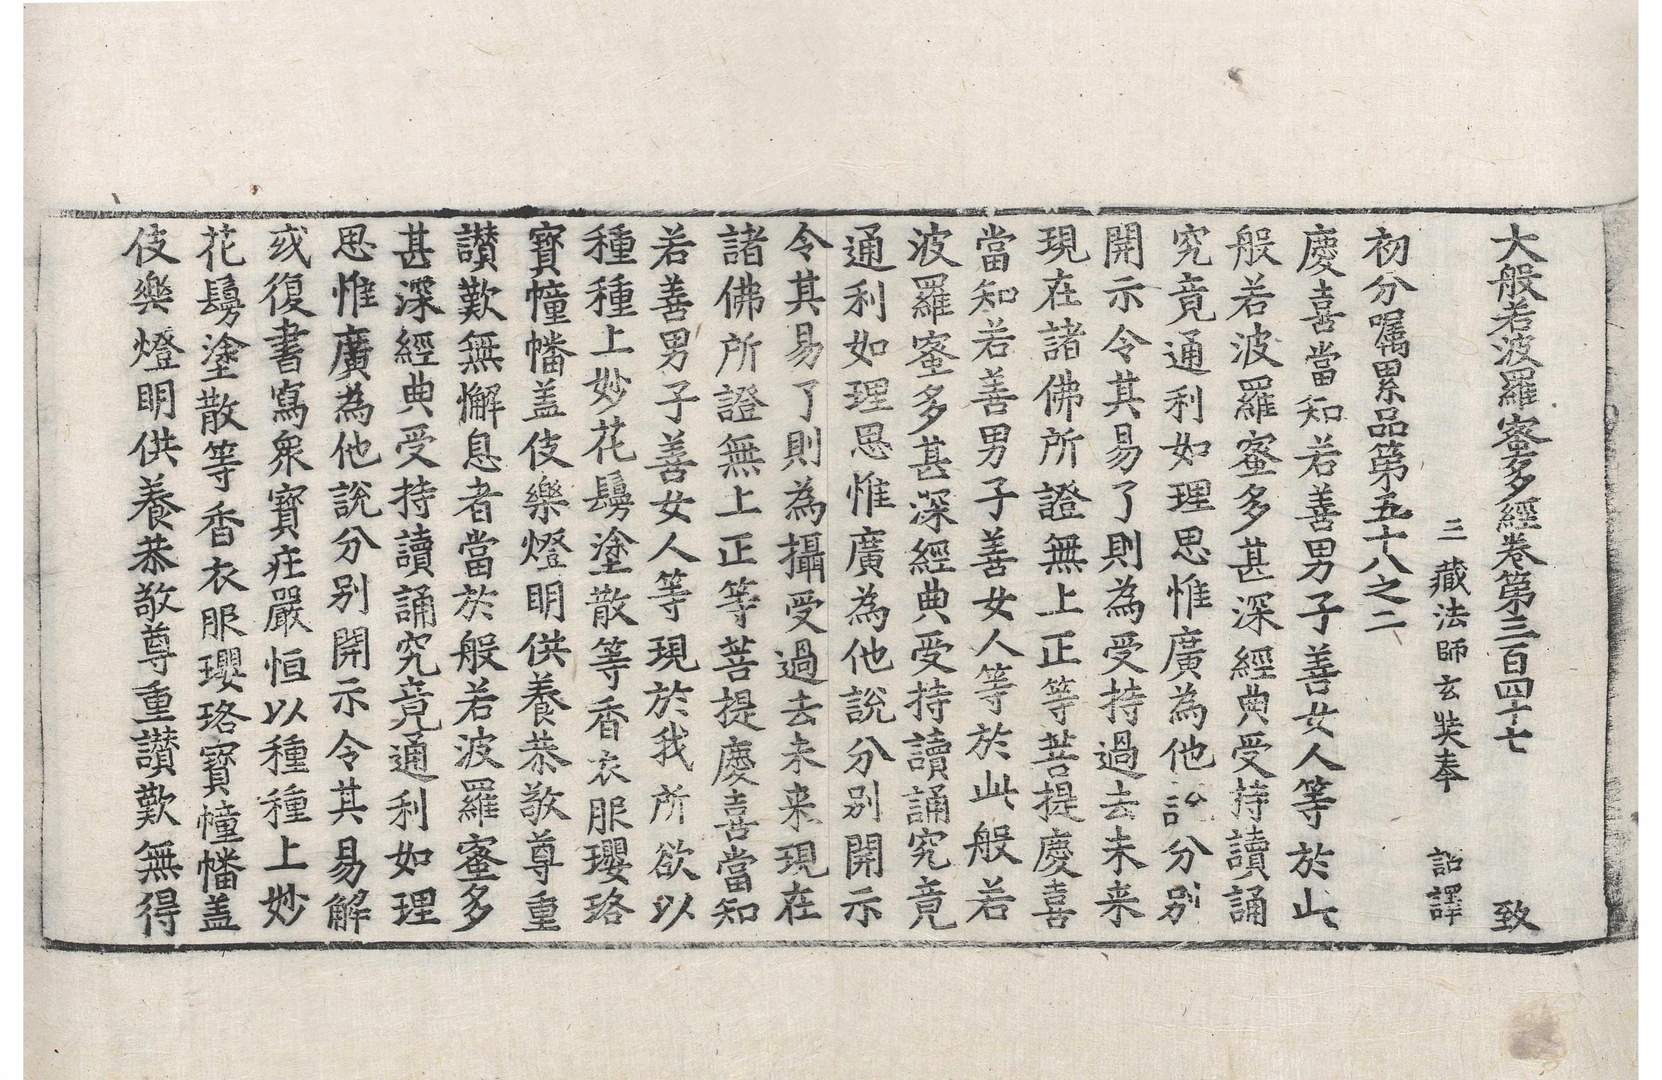 大般若波羅蜜多經卷第三百四十七 致
三藏法師玄奘奉 詔譯
初分囑累品第五十八之二
慶喜當知若善男子善女人等於此
般若波羅蜜多甚深經典受持讀誦
究竟通利如理思惟廣為他說分別
開示令其易了則為受持過去未来
現在諸佛所證無上正等菩提慶喜
當知若善男子善女人等於此般若
波羅蜜多甚深經典受持讀誦究竟
通利如理思惟廣為他說分別開示
令其易了則為攝受過去未来現在
諸佛所證無上正等菩提慶喜當知
若善男子善女人等現於我所欲以
種種上妙花鬘塗散等香衣服瓔珞
寶幢幡盖伎樂燈明供養恭敬尊重
讃歎無懈息者當於般若波羅蜜多
甚深經典受持讀誦究竟通利如理
思惟廣為他說分别開示令其易解
或復書寫衆寶莊嚴恒以種種上妙
花鬘塗散等香衣服瓔珞寶幢幡盖
伎樂燈明供養恭敬尊重讃歎無得